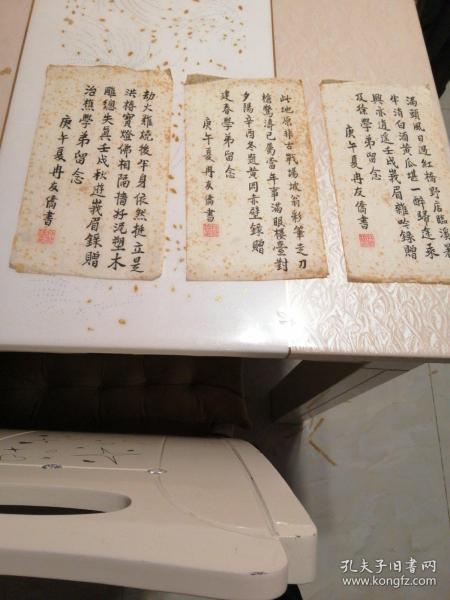 满頭風日過紅橋野店臨溪署
牛清白酒黄瓜堪一醉歸途乘
興亦逍遥壬戌峩眉雜吟錄贈
及徐學弟留念
庚午夏冉友僑書
此地原非古戰場坡翁彩筆走刀
槍驚濤已屬當年事滿眼樓臺對
夕陽辛酉冬題黄岡赤壁錄贈
建春學弟留念
庚午夏冉友僑書
劫火難燒後午身依然挺立是
洪椿寶燈佛相隔牆好泥塑木
雕總失真壬戌秋遊峩眉錄贈
治熊學弟留念
庚午夏冉友僑書
孔夫子旧书网
www.kongfz.com